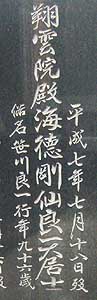 平成七年七月十八日歿
翔雲院殿海德剛仙良一大居士
俗名笹川良一行年九十六歳